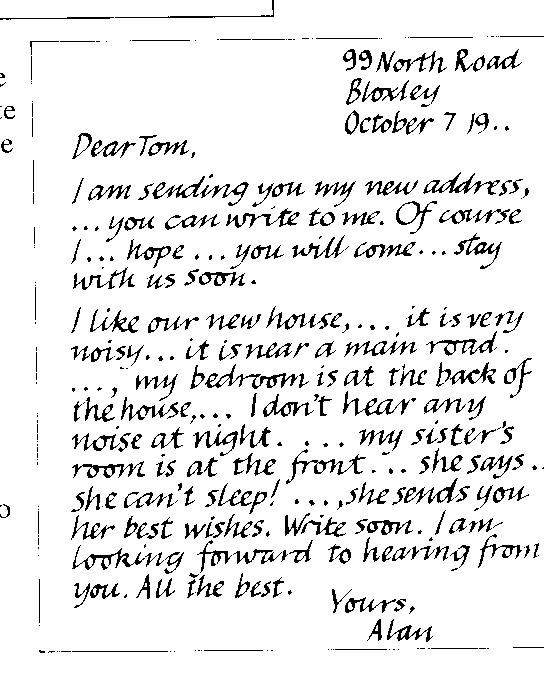 99 North Road
Bloxley
October 7 19..
Dear Tom,
I am sending you my new address,
... you can write to me. Of course
I... hope ... you will come... stay
with us soon.
I like our new house,... it is very
noisy... it is near a main road.
..., my bedroom is at the back of
the house,... I don't hear any
noise at night. ... my sister's
room is at the front... she says..
she can't sleep! ...,she sends you
her best wishes. Write soon. I am
looking forward to hearing from
you. All the best.
Yours,
Alan